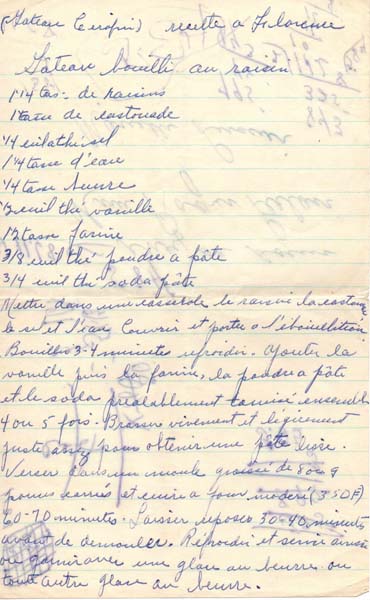 (Gateau Cerofin) recette a Florence
Gâteau bouilli au raisin
1 1/4 tas- de raisins
1 tasse de castonade
1/4 cuil a thé sel
1 1/4 tasse d'eau
1/4 tasse beurre
1/2 cuil thé vanille
1 1/2 tasse farine
3/8 cuil thé poudre a pâte
3/4 cuil thé soda pâte
Mettre dans une casserole le raisin la castonade
le sel et l'eau Couvrir et porter a l'ébouillation
Bouillir 3-4 minutes refroidir. Ajouter la
vanille puis la farine, la poudre a pâte
et le soda préalablement tamisé ensemble
4 ou 5 fois. Brasser vivement et légèrement
juste assez pour obtenir une pâte lisse.
Verser dans un moule graissé de 8 ou 9
pouces carrés et cuire a four modéré (350 F)
60-70 minutes. Laisser reposer 30-40 minutes
avant de démouler. Refroidir et servir
ou garnir avec une glace au beurre ou
toute autre glace au beurre.